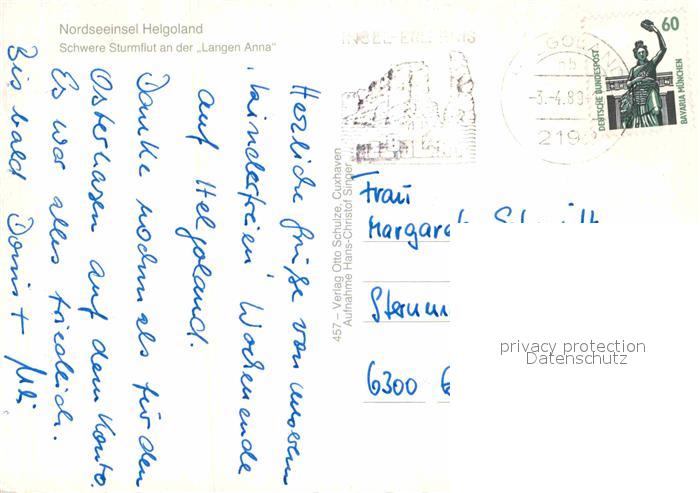 Nordseeinsel Helgoland
Schwere Sturmflut an der „Langen Anna"
Herzliche Grüße von unserem
"kinderfreien" Wochenende
auf Helgoland.
Danke nochmals für den
Osterhasen auf dem Konto.
Es war alles friedlich.
Bis bald Doris +
457 – Verlag Otto Schulze, Cuxhaven
Aufnahme Hans-Christof Singer
60
DEUTSCHE BUNDESPOST
BAVARIA MÜNCHEN
-3.-4.89
219
Frau
6300
privacy protection
Datenschutz